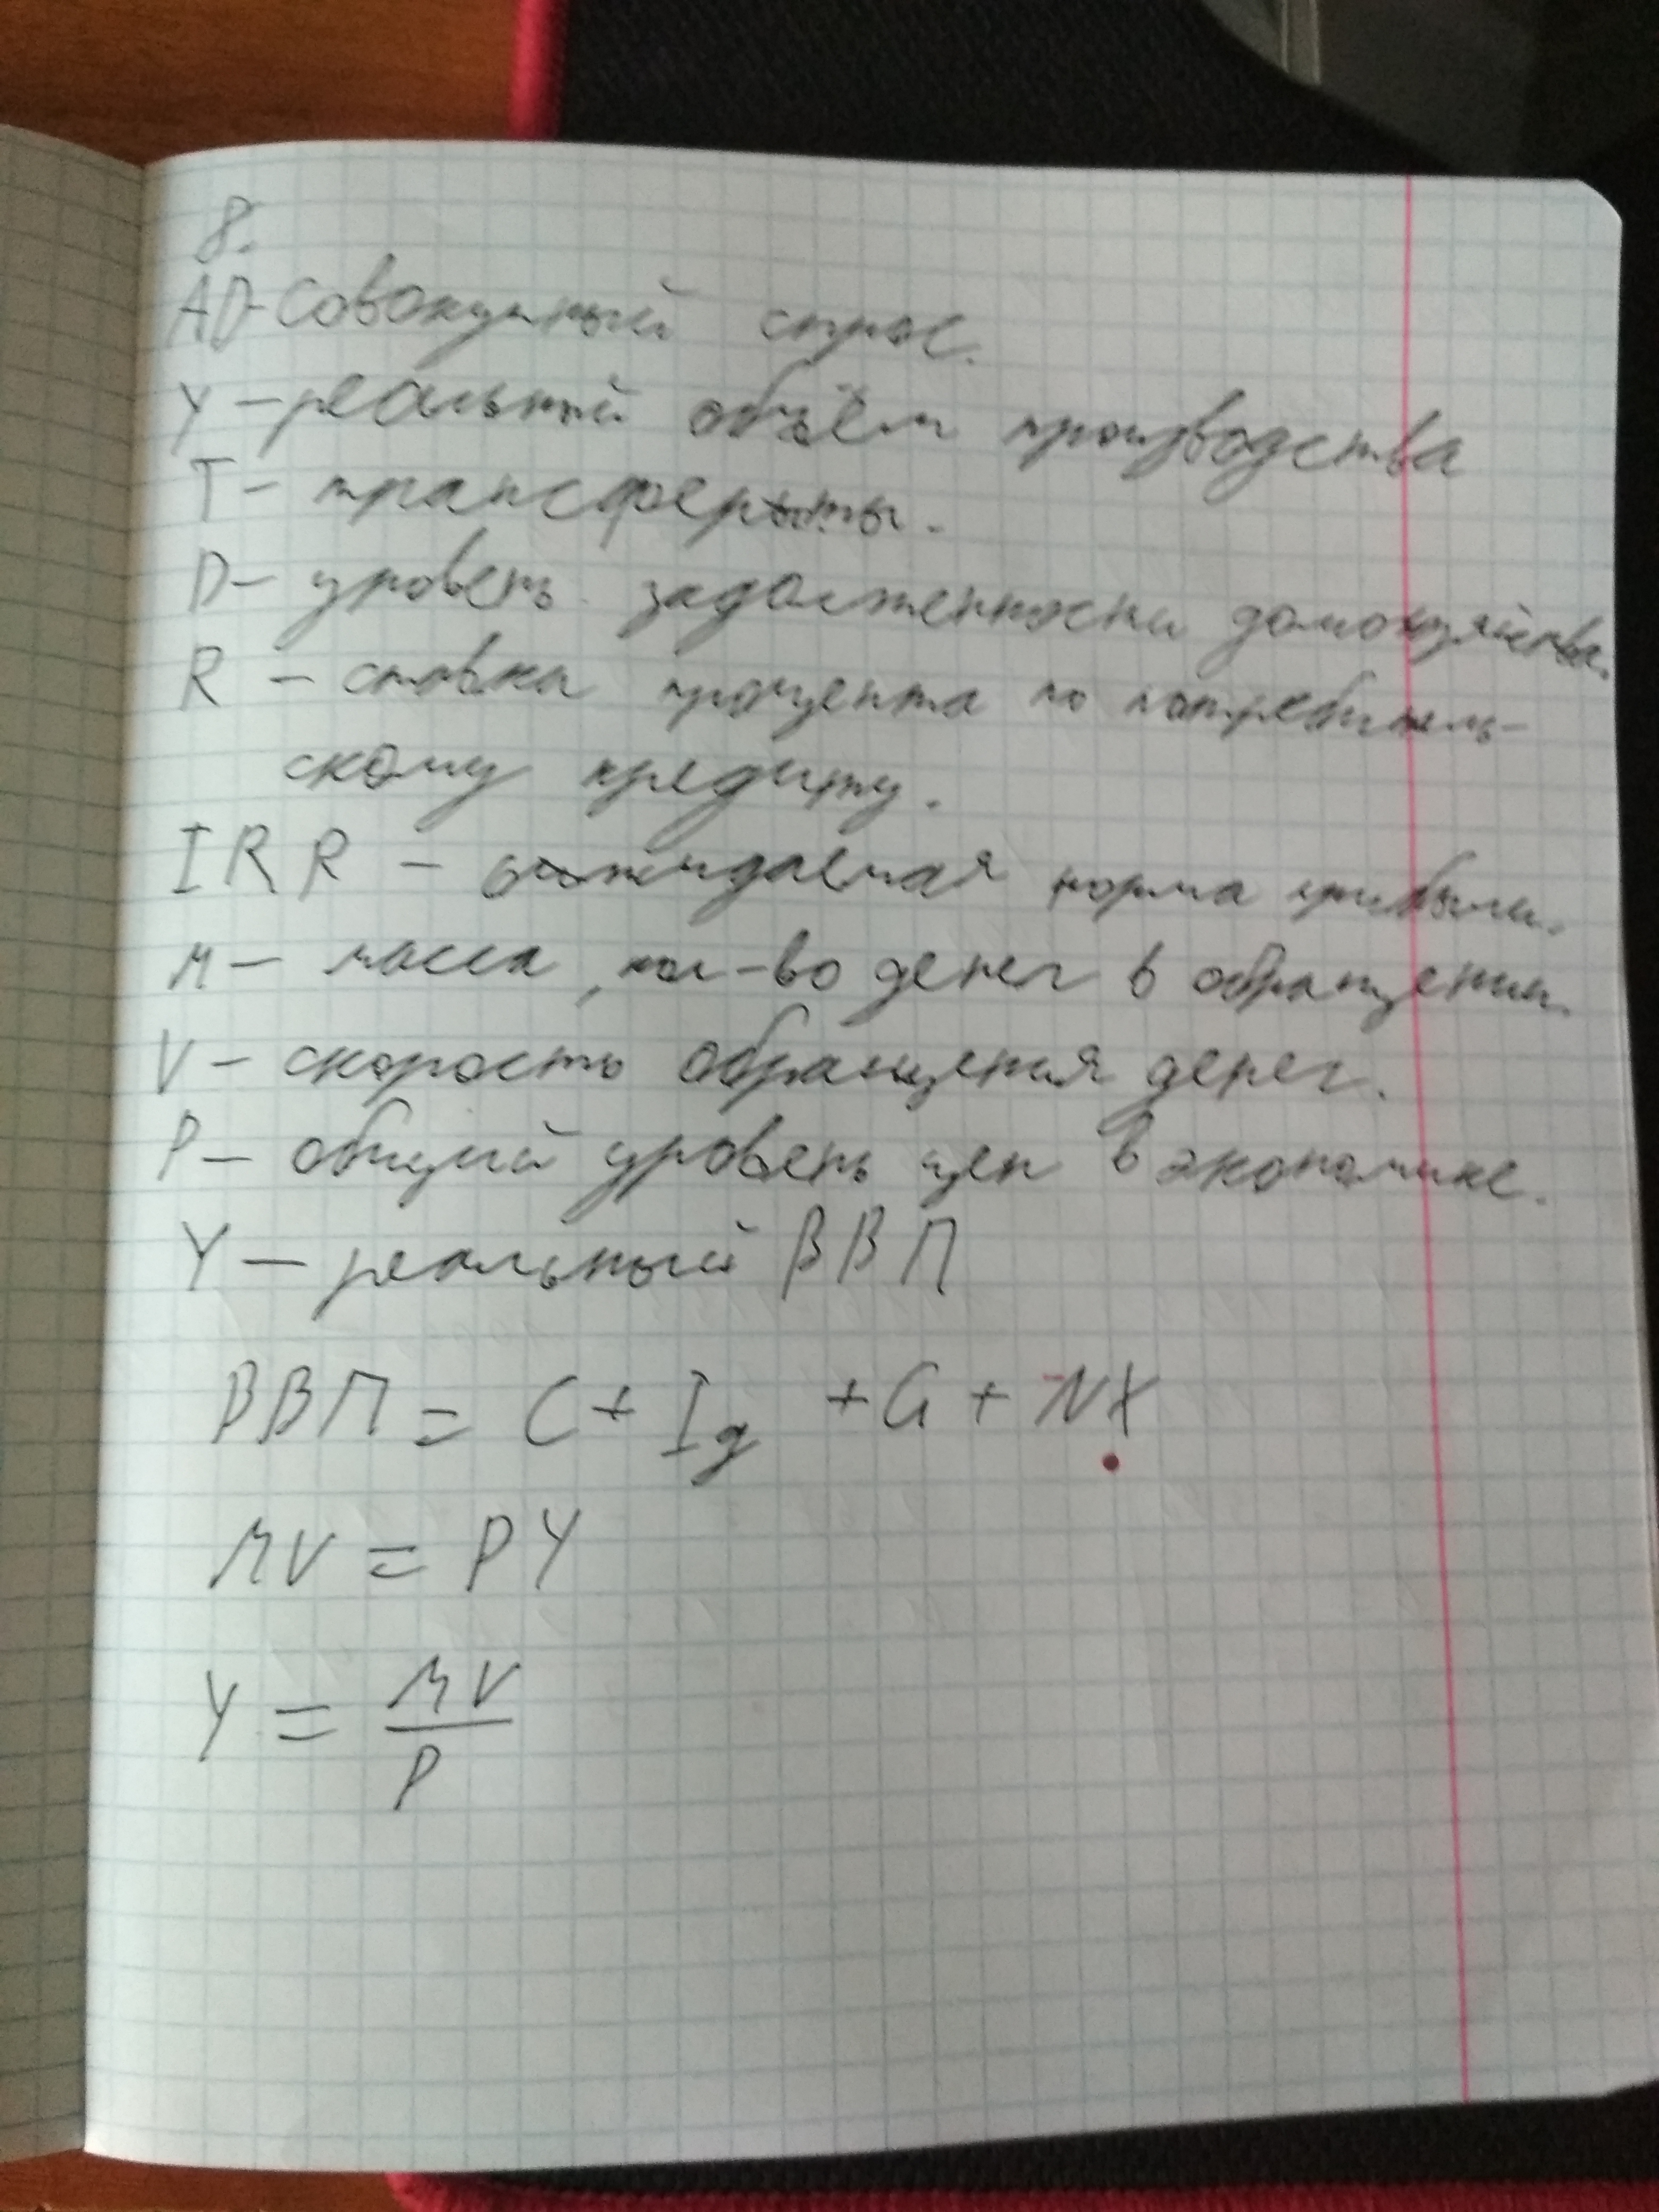 8.
AD-Совокупный спрос.
Y - реальный объём производства
T - трансферты.
D - уровень задолженности домохозяйства.
R - ставка процента по потребитель-
скому кредиту.
IRR - ожидаемая норма прибыли.
M - масса, кол-во денег в обращении.
V - скорость обращения денег.
P - общий уровень цен в экономике.
Y - реальный ВВП
ВВП = C + Ig + G + NX
MV = PY
Y = MV
P